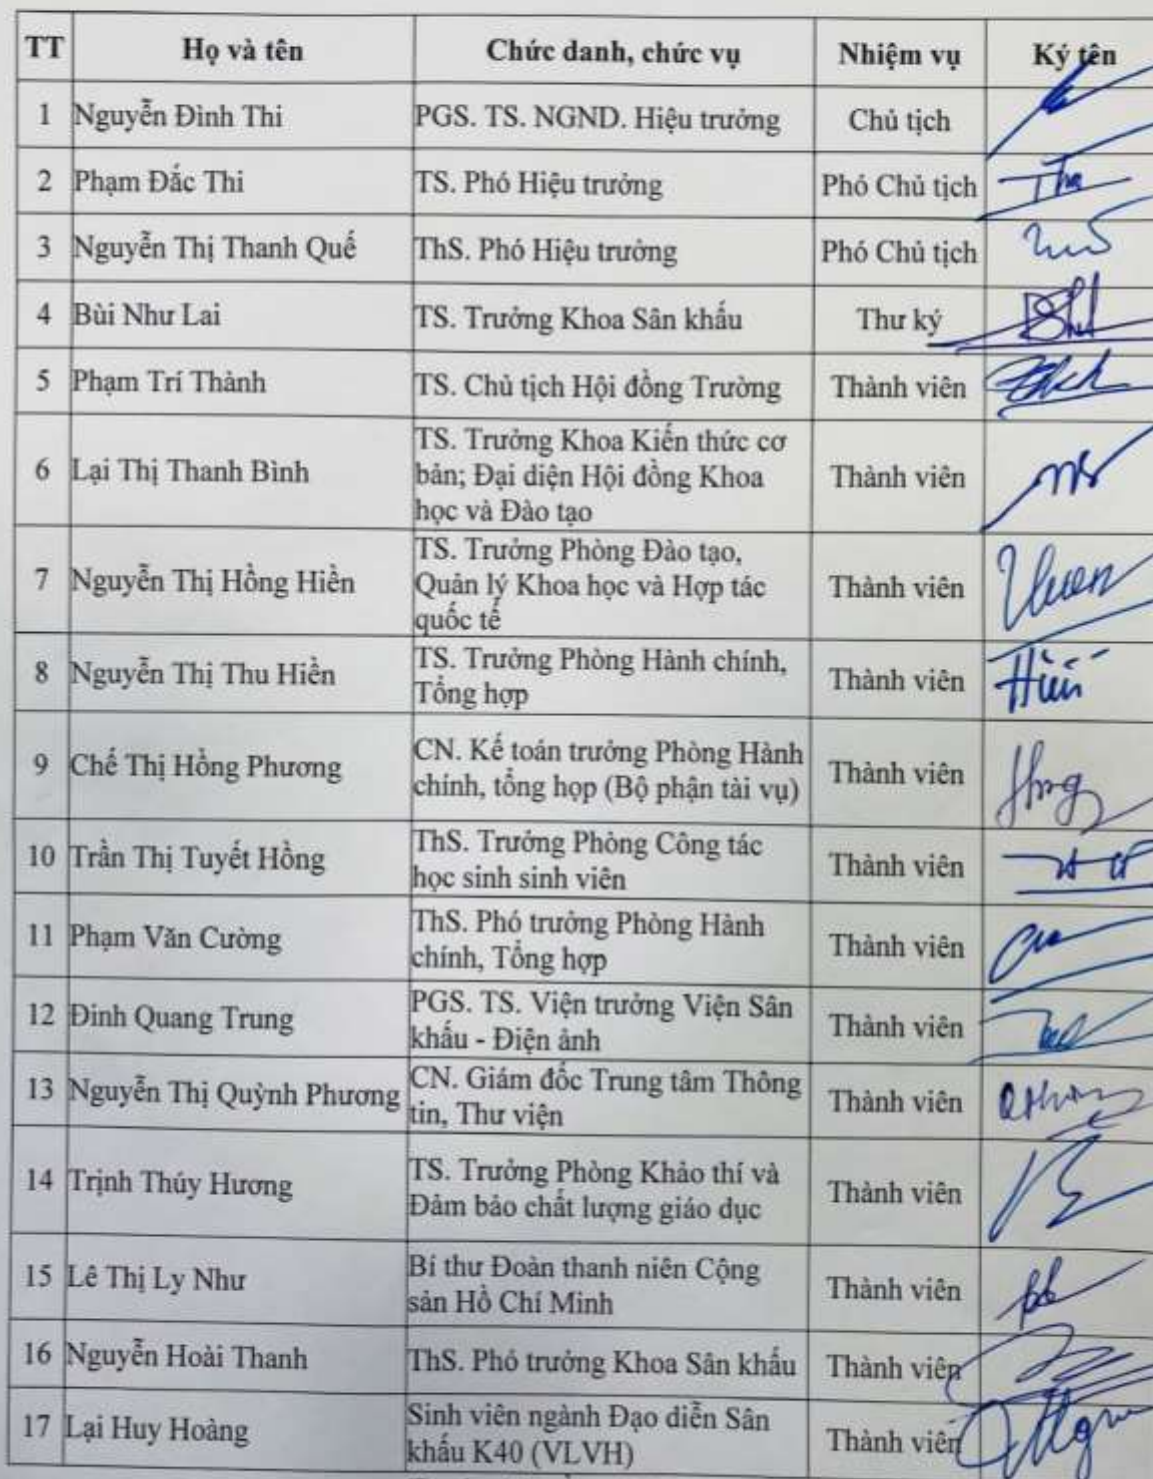 TT Họ và tên Chức danh, chức vụ Nhiệm vụ Ký tên
1 Nguyễn Đình Thi PGS. TS. NGND. Hiệu trưởng Chủ tịch
2 Phạm Đắc Thi TS. Phó Hiệu trưởng Phó Chủ tịch
3 Nguyễn Thị Thanh Quế ThS. Phó Hiệu trưởng Phó Chủ tịch
4 Bùi Như Lai TS. Trưởng Khoa Sân khấu Thư ký
5 Phạm Trí Thành TS. Chủ tịch Hội đồng Trường Thành viên
6 Lại Thị Thanh Bình TS. Trưởng Khoa Kiến thức cơ
bản; Đại diện Hội đồng Khoa
học và Đào tạo Thành viên
7 Nguyễn Thị Hồng Hiền TS. Trưởng Phòng Đào tạo,
Quản lý Khoa học và Hợp tác
quốc tế Thành viên
8 Nguyễn Thị Thu Hiền TS. Trưởng Phòng Hành chính,
Tổng hợp Thành viên
9 Chế Thị Hồng Phương CN. Kế toán trưởng Phòng Hành
chính, tổng hợp (Bộ phận tài vụ) Thành viên
10 Trần Thị Tuyết Hồng ThS. Trưởng Phòng Công tác
học sinh sinh viên Thành viên
11 Phạm Văn Cường ThS. Phó trưởng Phòng Hành
chính, Tổng hợp Thành viên
12 Đinh Quang Trung PGS. TS. Viện trưởng Viện Sân
khấu - Điện ảnh Thành viên
13 Nguyễn Thị Quỳnh Phương CN. Giám đốc Trung tâm Thông
tin, Thư viện Thành viên
14 Trịnh Thúy Hương TS. Trưởng Phòng Khảo thí và
Đảm bảo chất lượng giáo dục Thành viên
15 Lê Thị Ly Như Bí thư Đoàn thanh niên Cộng
sản Hồ Chí Minh Thành viên
16 Nguyễn Hoài Thanh ThS. Phó trưởng Khoa Sân khấu Thành viên
17 Lại Huy Hoàng Sinh viên ngành Đạo diễn Sân
khấu K40 (VLVH) Thành viên